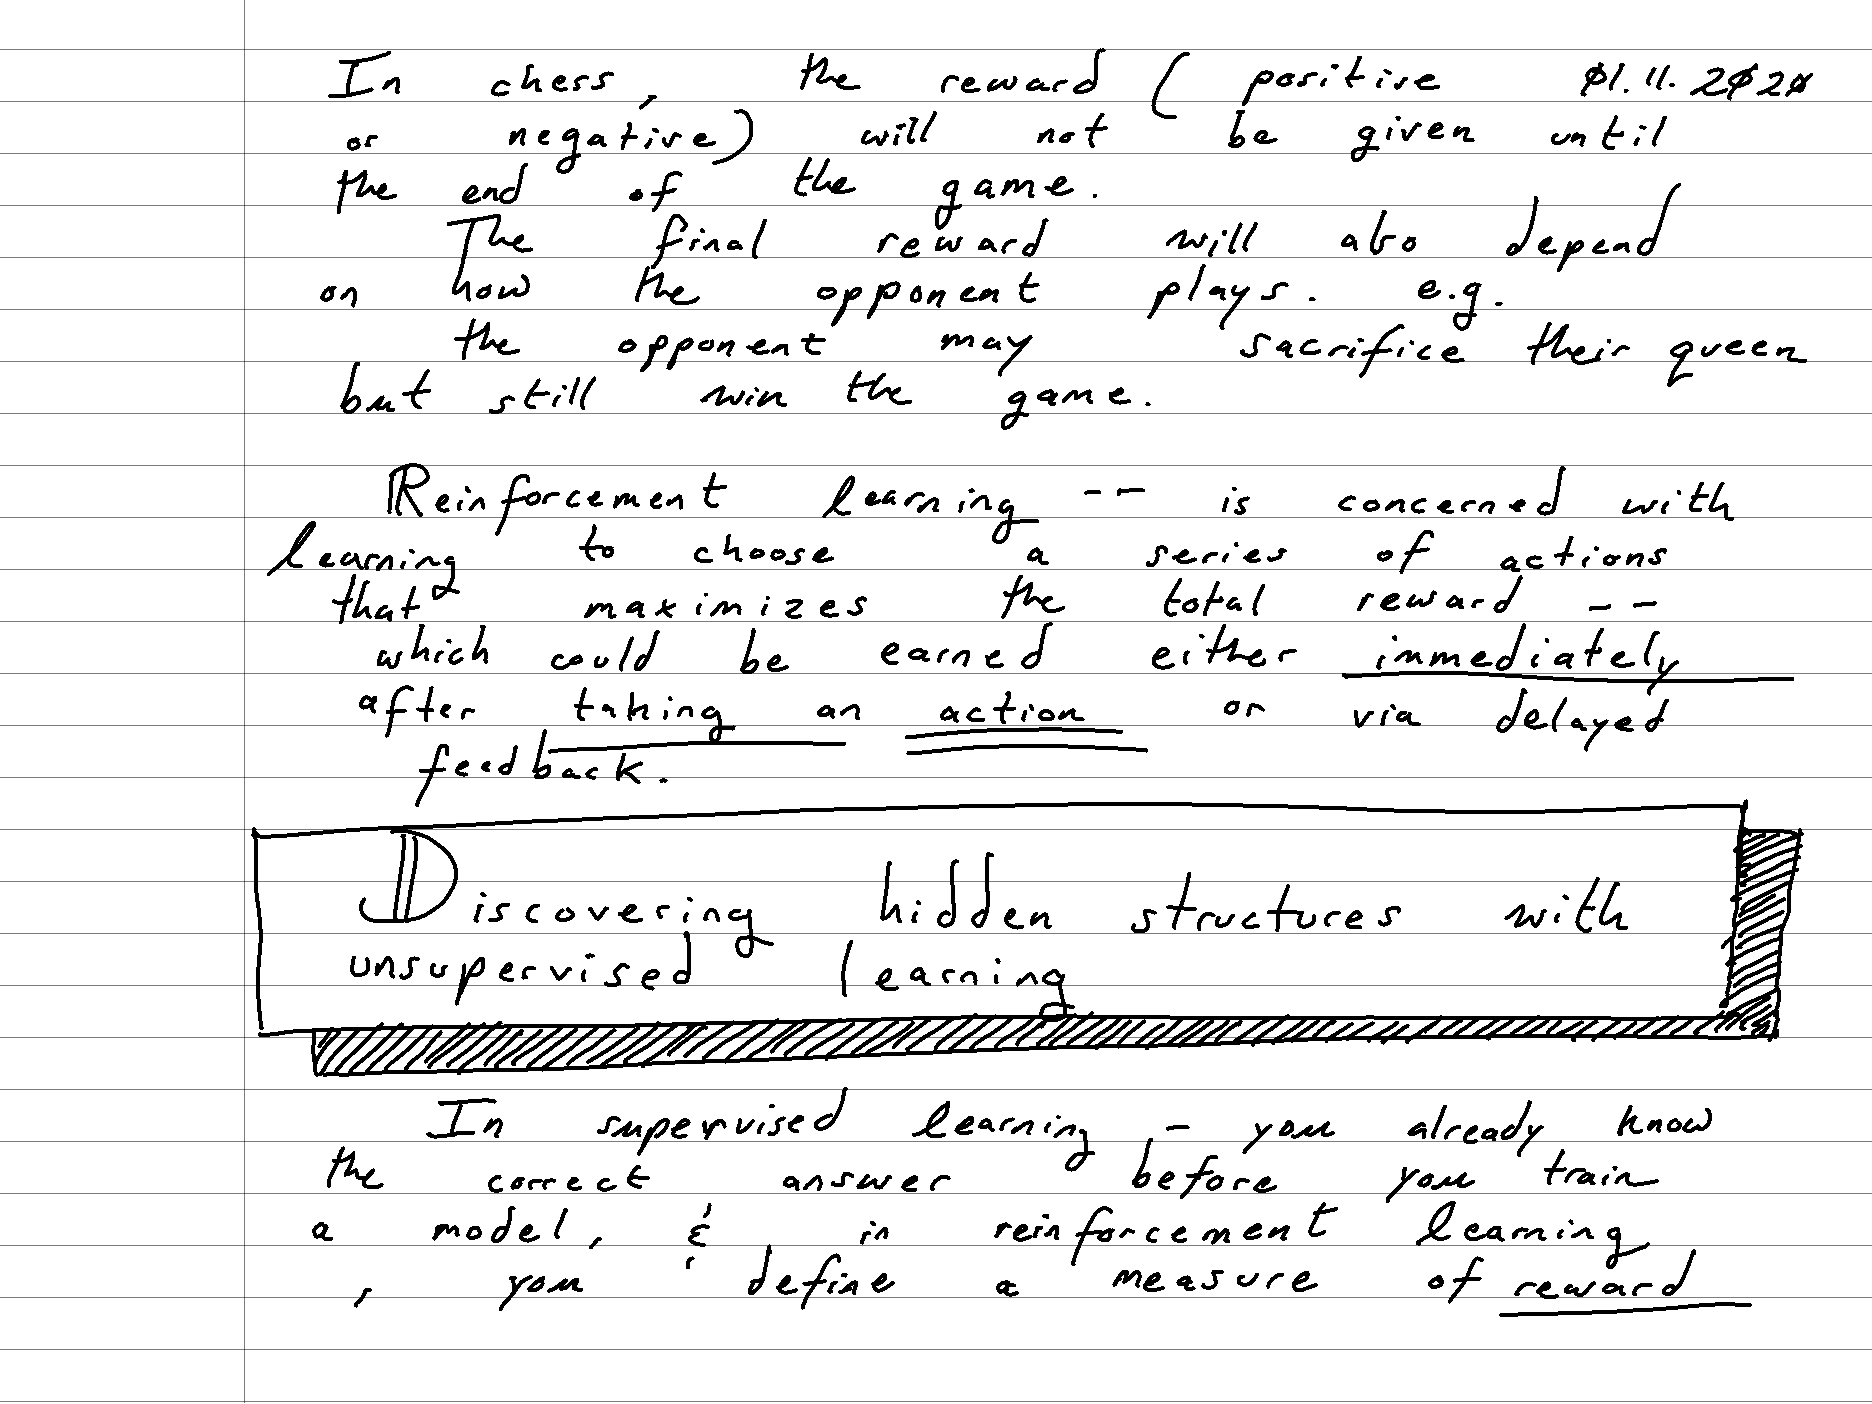 In chess, the reward (positive 01.11.2020
or negative) will not be given until
the end of the game.
The final reward will also depend
on how the opponent plays. e.g.
the opponent may sacrifice their queen
but still win the game.
Reinforcement learning -- is concerned with
learning to choose a series of actions
that maximizes the total reward --
which could be earned either immediately
after taking an action or via delayed
feedback.
Discovering hidden structures with
unsupervised learning
In supervised learning, - you already know
the correct answer before you train
a model, & in reinforcement learning
, you define a measure of reward